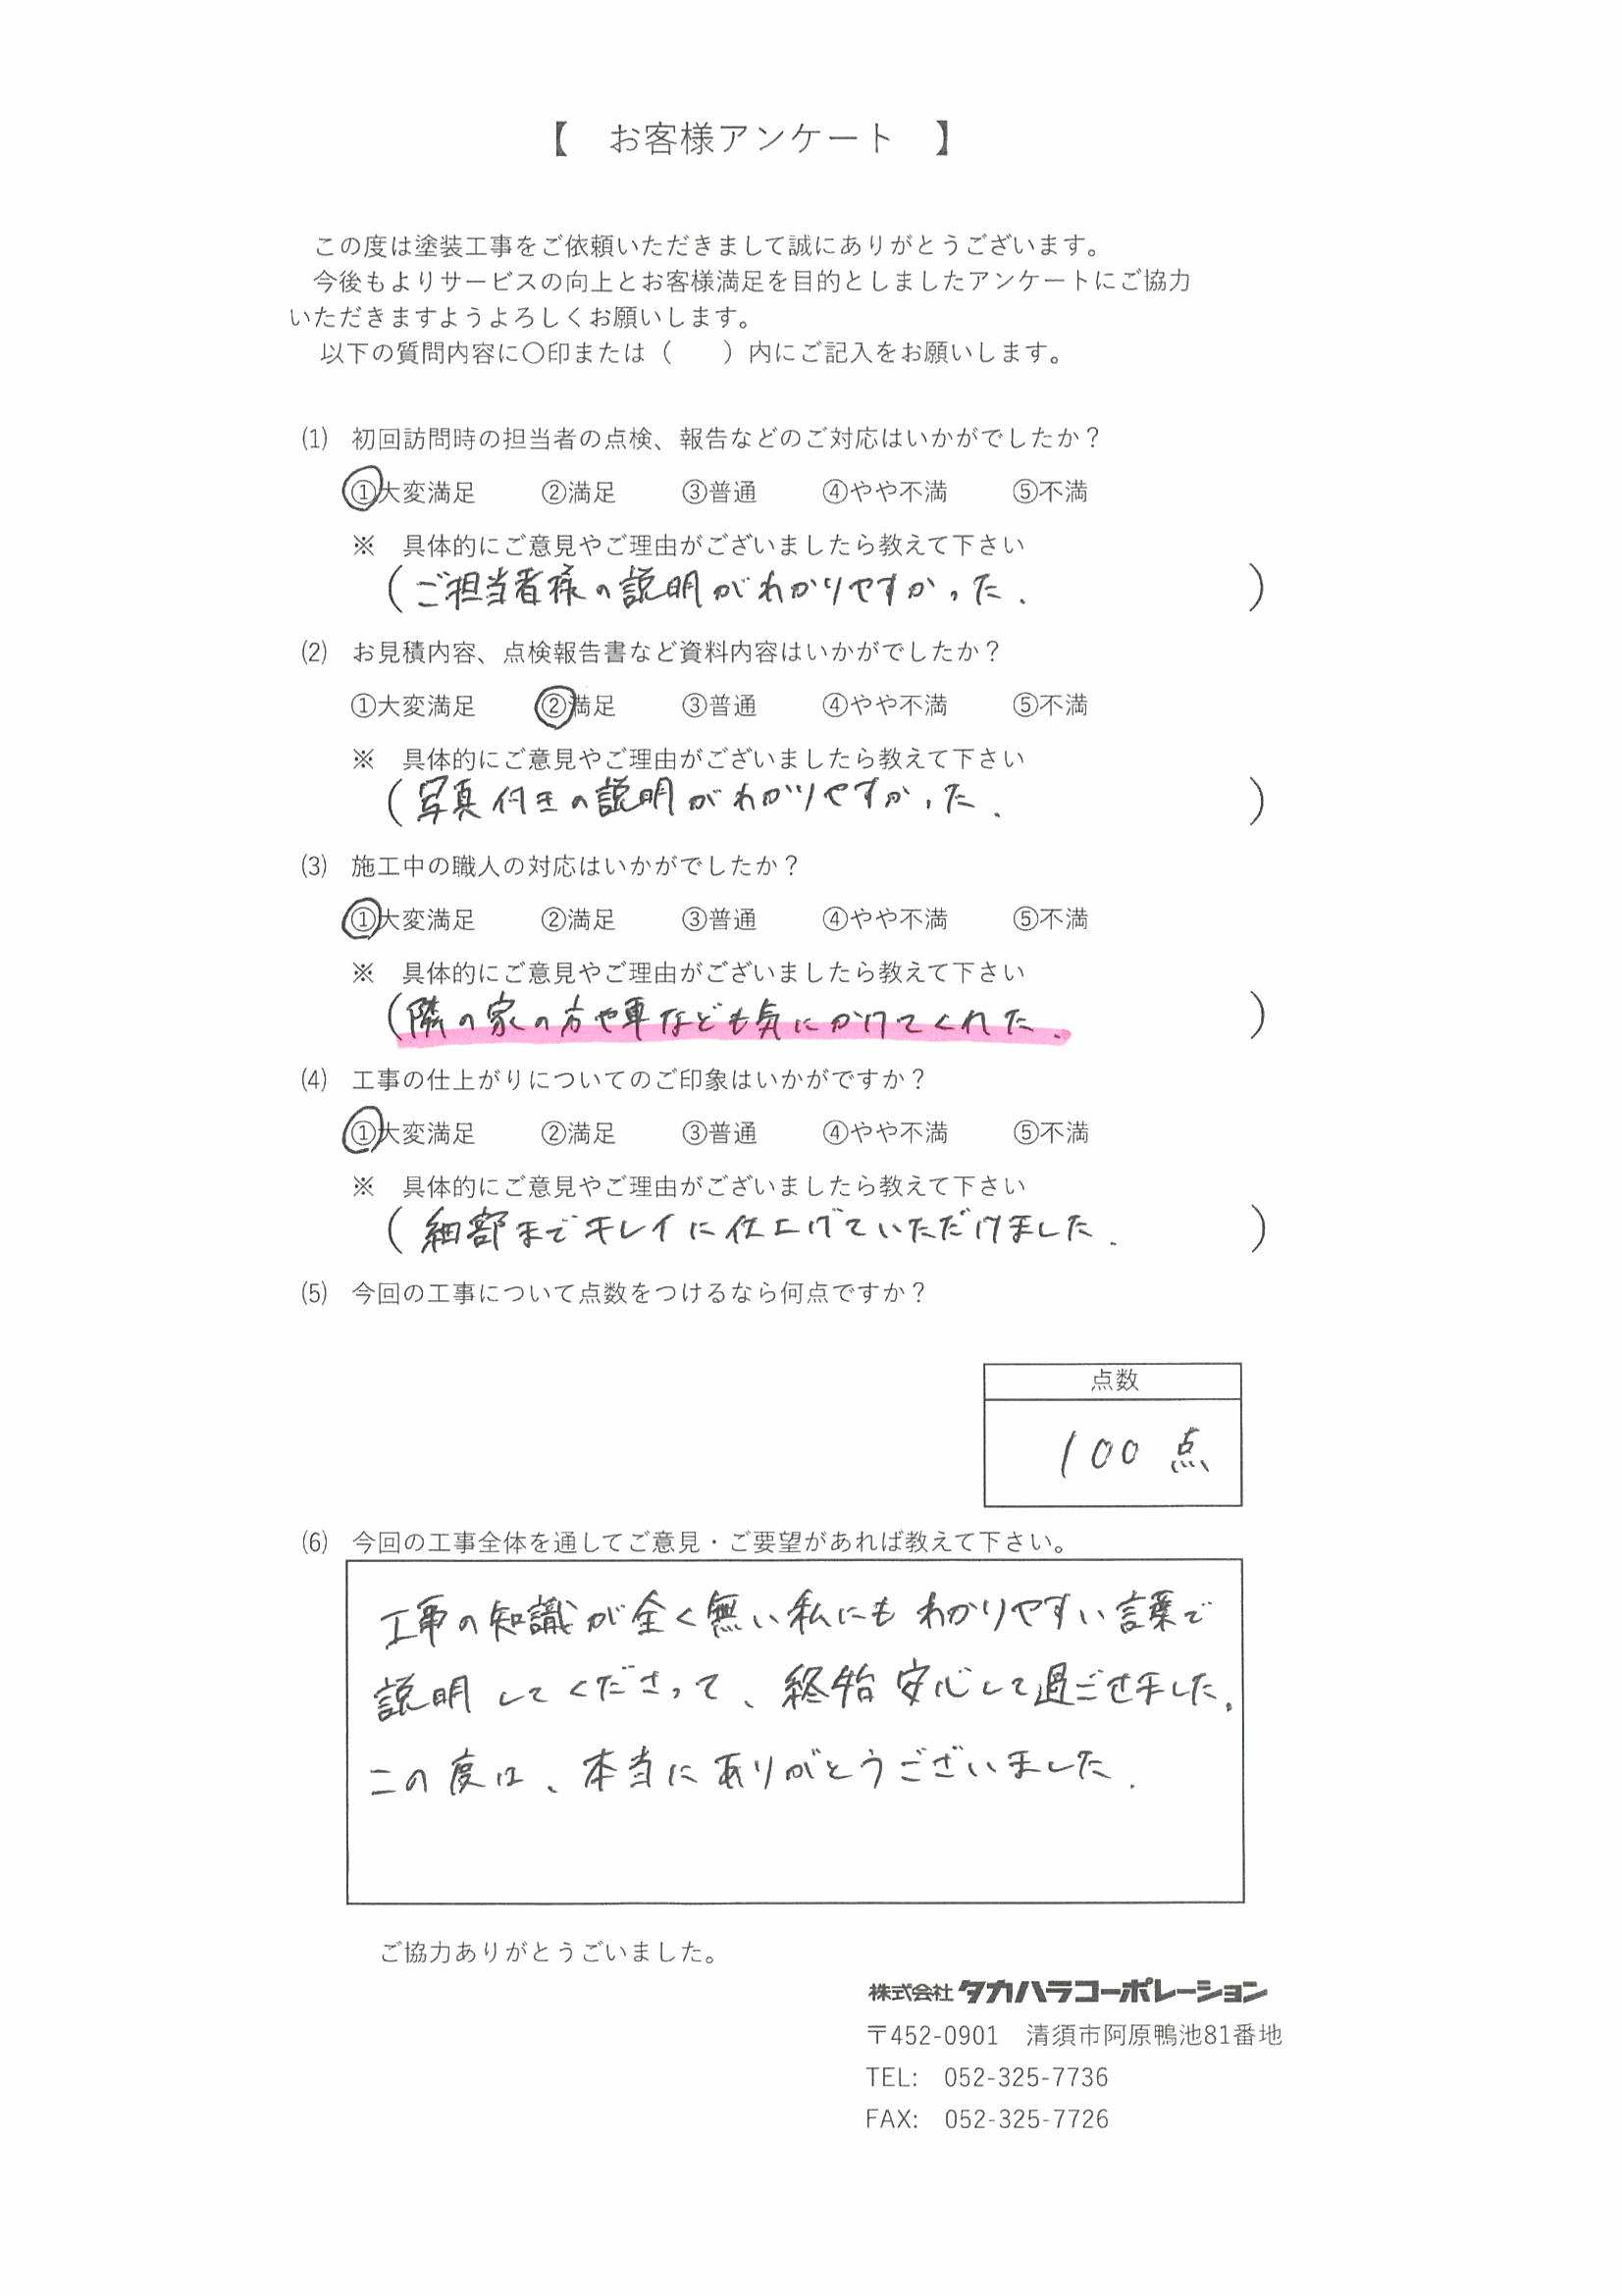 【　お客様アンケート　】
この度は塗装工事をご依頼いただきまして誠にありがとうございます。
今後もよりサービスの向上とお客様満足を目的としましたアンケートにご協力
いただきますようよろしくお願いします。
以下の質問内容に〇印または（　　）内にご記入をお願いします。
(1)　初回訪問時の担当者の点検、報告などのご対応はいかがでしたか？
①大変満足　②満足　③普通　④やや不満　⑤不満
※　具体的にご意見やご理由がございましたら教えて下さい
（ご担当者様の説明がわかりやすかった.）
(2)　お見積内容、点検報告書など資料内容はいかがでしたか？
①大変満足　②満足　③普通　④やや不満　⑤不満
※　具体的にご意見やご理由がございましたら教えて下さい
（写真付きの説明がわかりやすかった.）
(3)　施工中の職人の対応はいかがでしたか？
①大変満足　②満足　③普通　④やや不満　⑤不満
※　具体的にご意見やご理由がございましたら教えて下さい
（隣の家の方や車なども気にかけてくれた.）
(4)　工事の仕上がりについてのご印象はいかがですか？
①大変満足　②満足　③普通　④やや不満　⑤不満
※　具体的にご意見やご理由がございましたら教えて下さい
（細部までキレイに仕上げていただけました.）
(5)　今回の工事について点数をつけるなら何点ですか？
点数
100点
(6)　今回の工事全体を通してご意見・ご要望があれば教えて下さい。
工事の知識が全く無い私にもわかりやすい言葉で
説明してくださって、終始安心して過ごせました.
この度は、本当にありがとうございました.
ご協力ありがとうごいました。
株式会社タカハラコーポレーション
〒452-0901　清須市阿原鴨池81番地
TEL:　052-325-7736
FAX:　052-325-7726